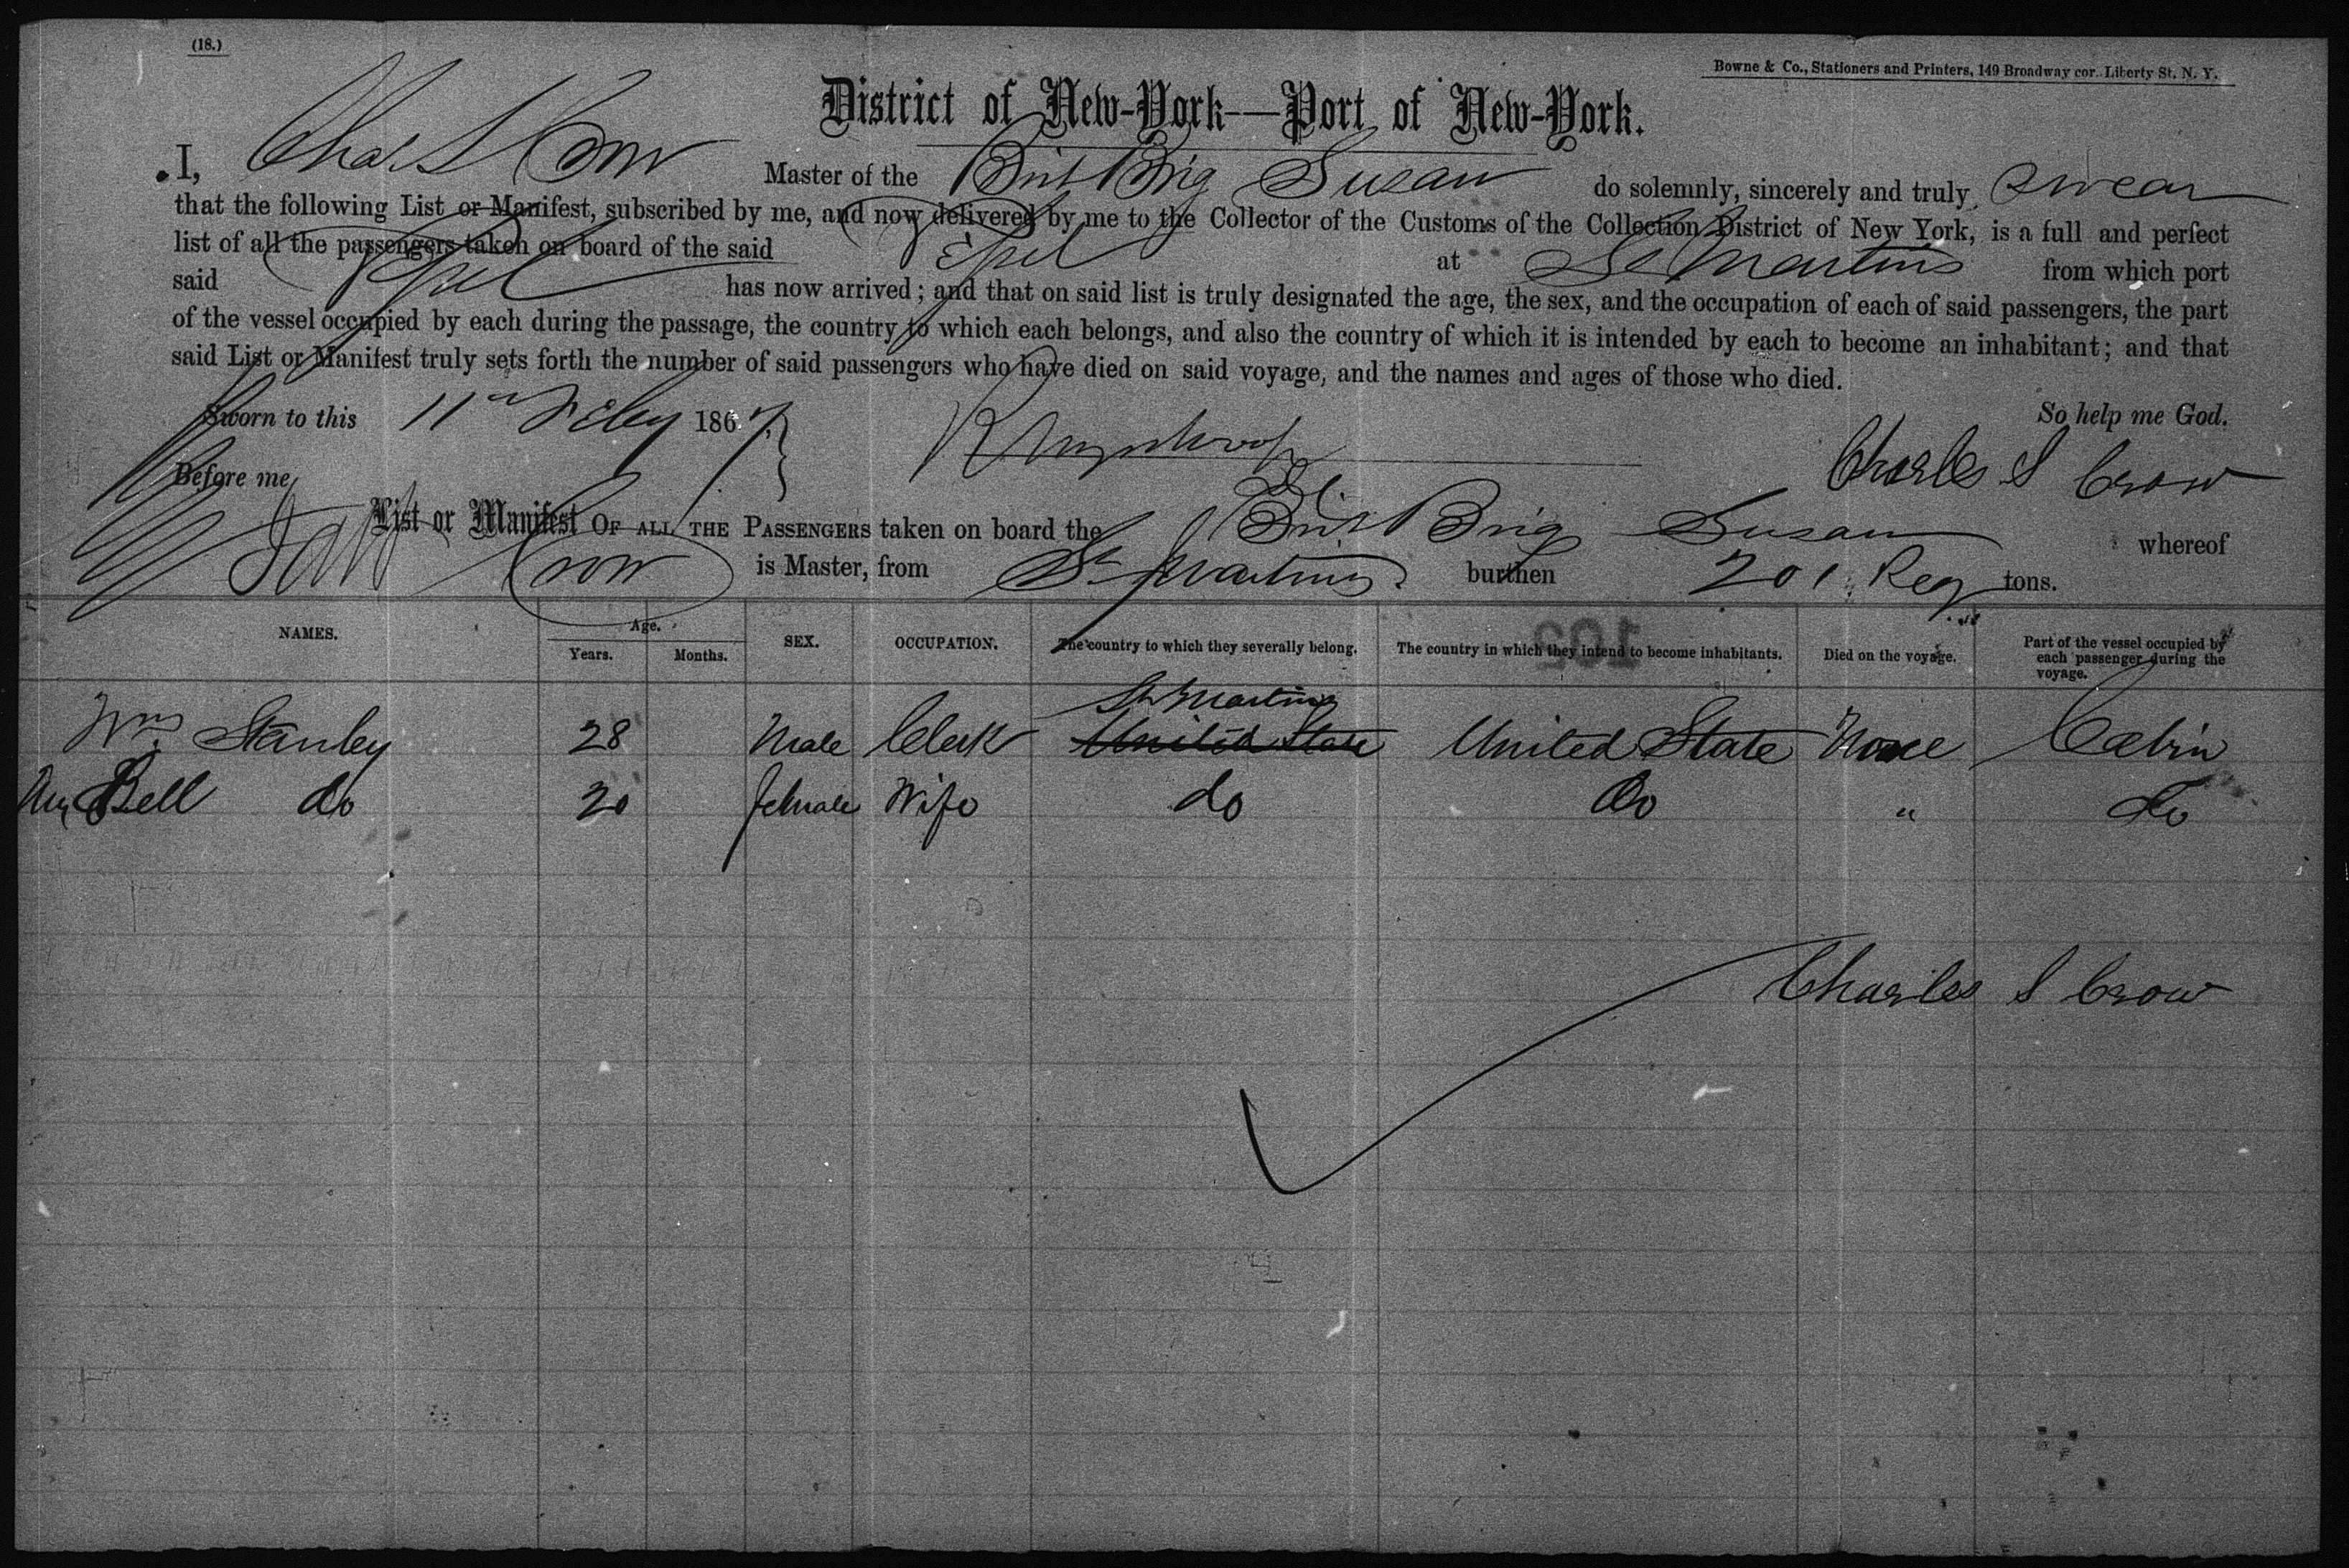 (18.)
Bowne & Co., Stationers and Printers, 149 Broadway cor. Liberty St. N. Y.
District of New-York—Port of New-York.
I, Chas S Crow Master of the Brit Brig Susan do solemnly, sincerely and truly swear
that the following List or Manifest, subscribed by me, and now delivered by me to the Collector of the Customs of the Collection District of New York, is a full and perfect
list of all the passengers taken on board of the said at St Martins from which port
said has now arrived; and that on said list is truly designated the age, the sex, and the occupation of each of said passengers, the part
of the vessel occupied by each during the passage, the country to which each belongs, and also the country of which it is intended by each to become an inhabitant; and that
said List or Manifest truly sets forth the number of said passengers who have died on said voyage, and the names and ages of those who died.
Sworn to this 11th Feby 1867 So help me God.
Before me Charles S Crow
List or Manifest OF ALL THE PASSENGERS taken on board the Brit Brig Susan whereof
Crow is Master, from St Martins burthen 201 Reg tons.
NAMES. Age. Years. Months. SEX. OCCUPATION. The country to which they severally belong. The country in which they intend to become inhabitants. Died on the voyage. Part of the vessel occupied by each passenger during the voyage.
102
St Martins
Wm Stanley 28 Male Clerk United State United State None Cabin
Bell do 20 female Wife do Do " do
Charles S Crow